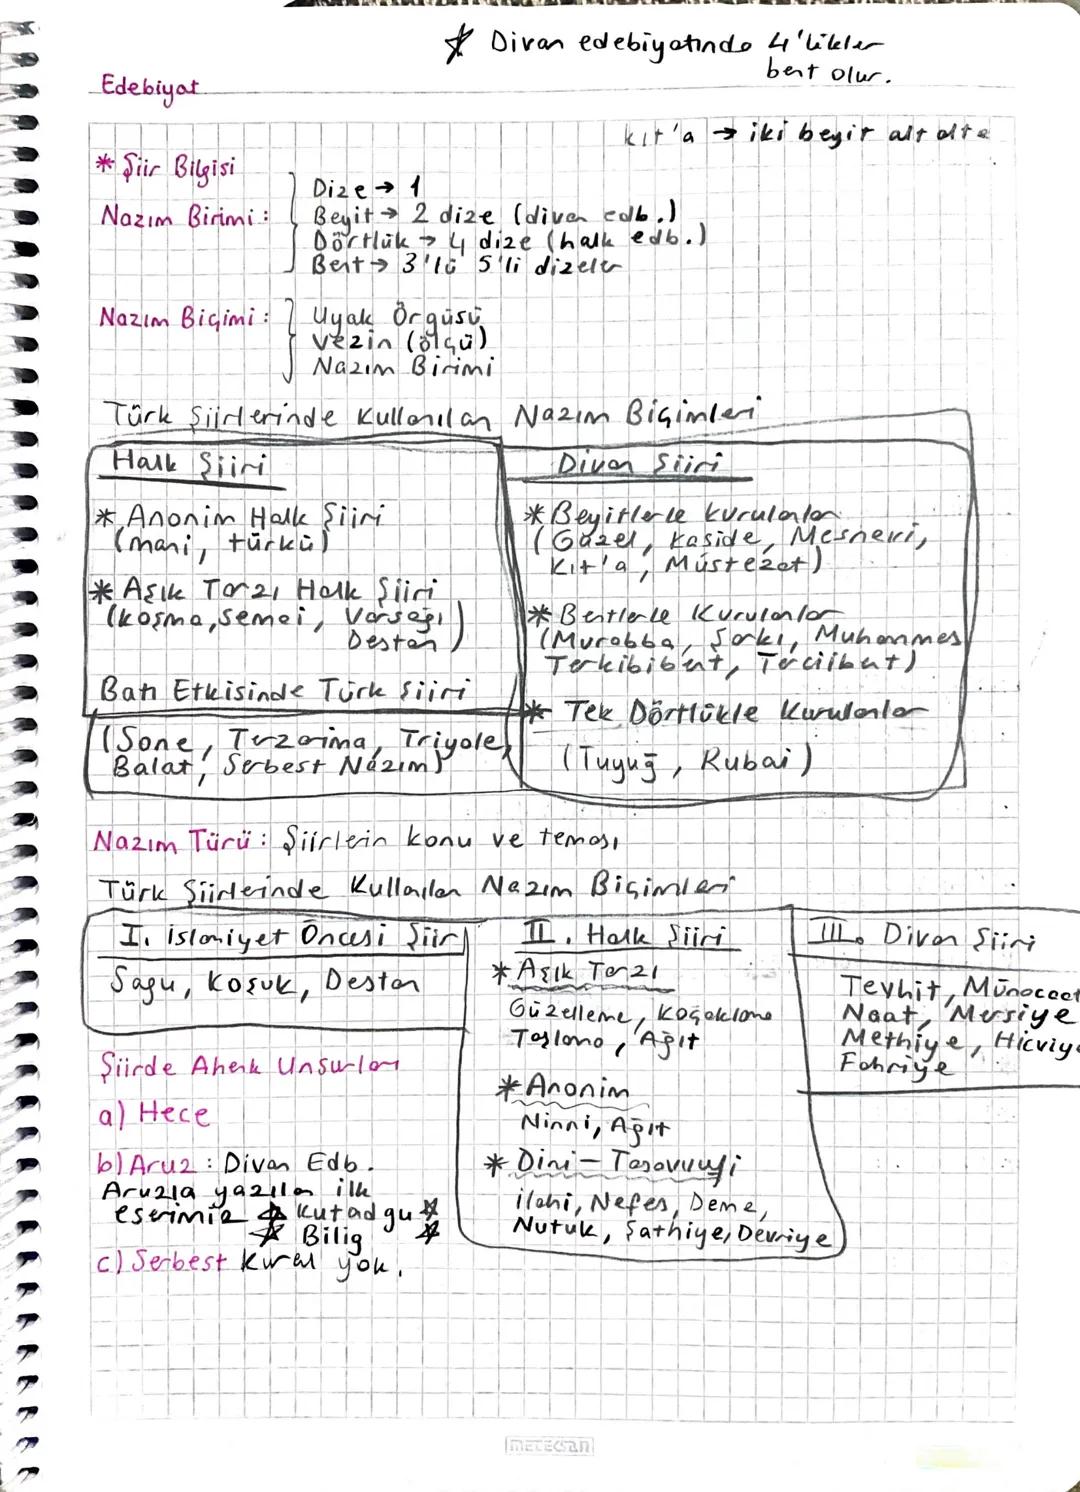 ★ Divan edebiyatında 4'lükler
bent olur.
Edebiyat
kıt'a → iki beyit alt alta
* Şiir Bilgisi
Nazım Birimi :
Dize → 1
Beyit → 2 dize (divan edb.)
Dörtlük → 4 dize (halk edb.)
Bent → 3'lü 5'li dizeler
Nazım Biçimi :
Uyak Örgüsü
Vezin (ölçü)
Nazım Birimi
Türk Şiirlerinde Kullanılan Nazım Biçimleri
Halk Şiiri
* Anonim Halk Şiiri
(mani, türkü)
* Aşık Tarzı Halk Şiiri
(koşma, semai, Varsağı
Destan)
Batı Etkisinde Türk Şiiri
(Sone, Terzarima, Triyole,
Balat, Serbest Nazım)
Divan Şiiri
* Beyitlerle kurulanlar
(Gazel, kaside, Mesnevi,
Kıt'a, Müstezat)
* Bentlerle Kurulanlar
(Murabba, Şarkı, Muhammes
Terkibibent, Terciibent)
* Tek Dörtlükle Kurulanlar
(Tuyuğ, Rubai)
Nazım Türü : Şiirlerin konu ve teması
Türk Şiirlerinde Kullanılan Nazım Biçimleri
I. İslamiyet Öncesi Şiir
Sagu, Koşuk, Destan
II. Halk Şiiri
* Aşık Tarzı
Güzelleme, Koçaklama
Taşlama, Ağıt
* Anonim
Ninni, Ağıt
* Dini - Tasavvufi
ilahi, Nefes, Deme,
Nutuk, Şathiye, Devriye
III. Divan Şiiri
Tevhit, Münacaat
Naat, Mersiye
Methiye, Hicviye
Fahriye
Şiirde Ahenk Unsurları
a) Hece
b) Aruz : Divan Edb.
Aruzla yazılan ilk
eserimiz ★ Kutadgu ★
★ Bilig ★
c) Serbest Kural yok.
metecsan